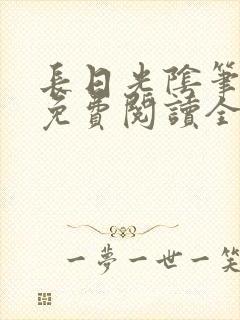 長日光陰筆
免費閱讀全
一夢一世一笑